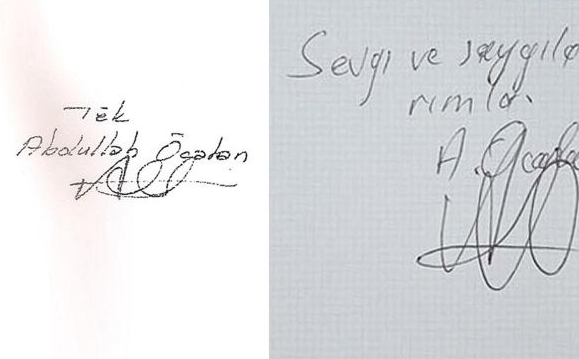 Tek
Abdullah Öcalan
Sevgi ve saygıla
rımla.
A. Öcala